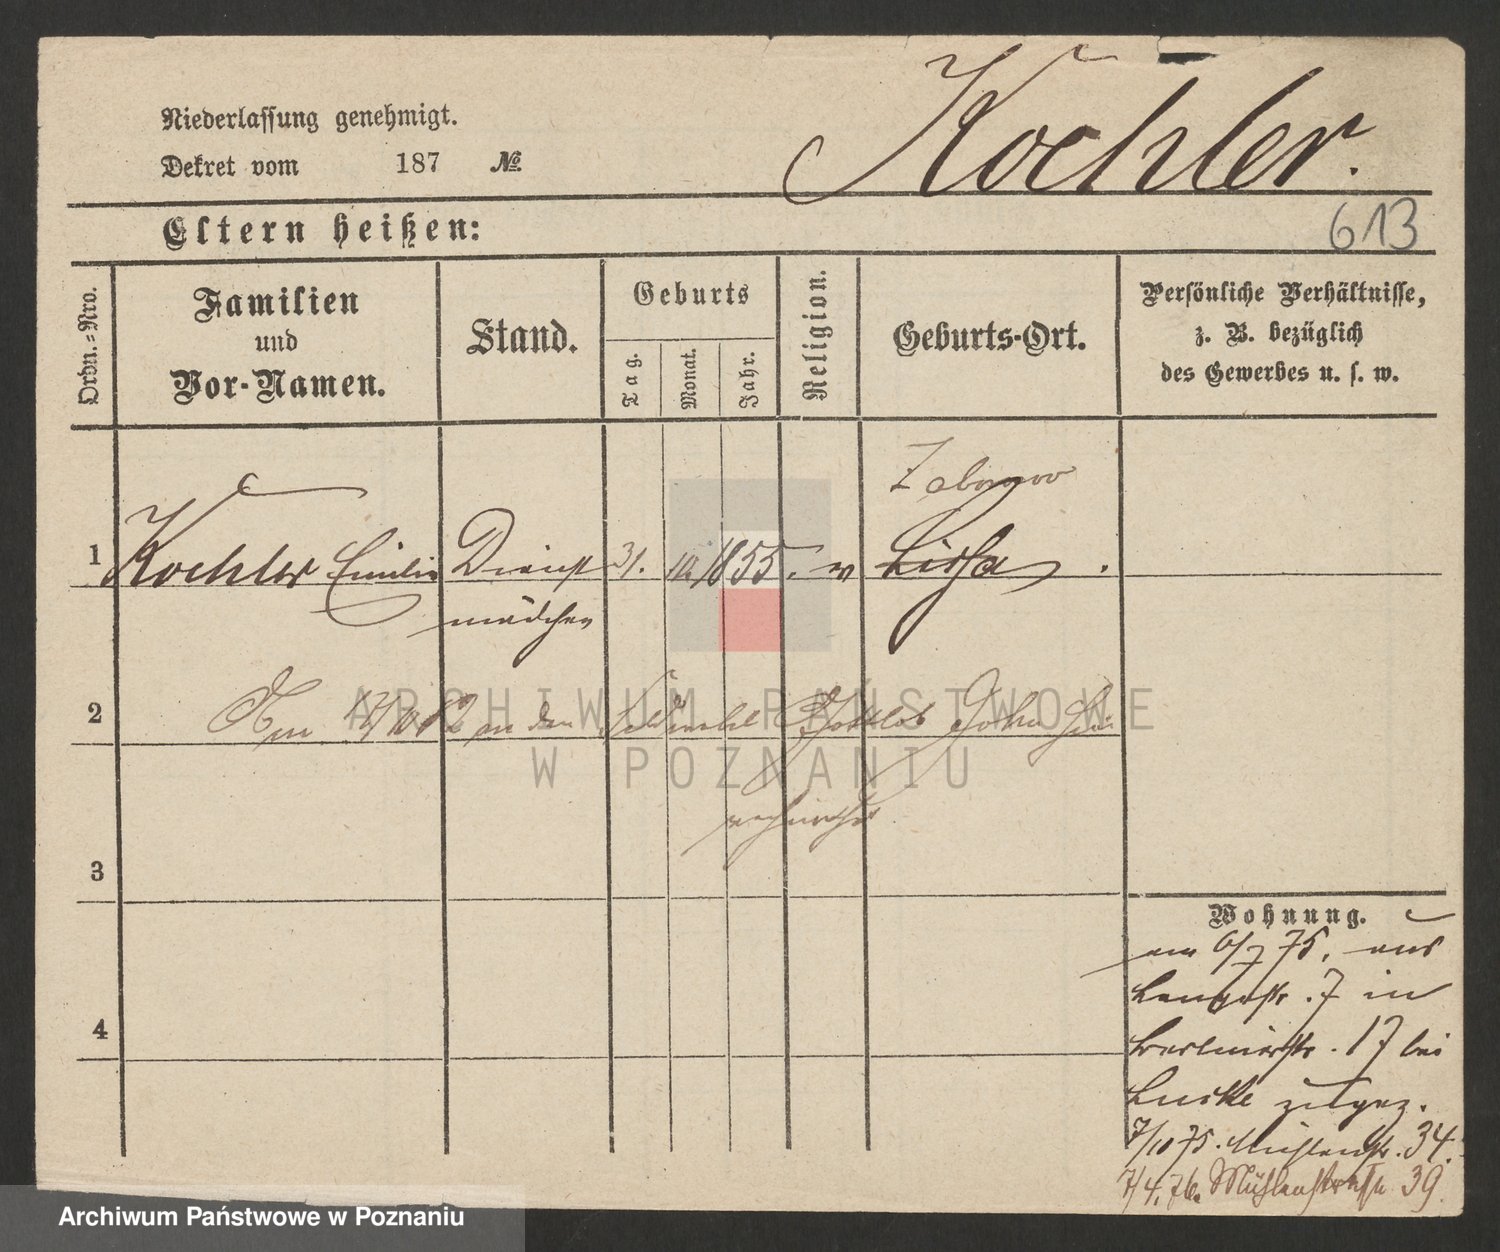 Niederlassung genehmigt.
Dekret vom 187 №
Koehler.
Eltern heißen:
613
Ordn.-Nro.
Familien
und
Vor-Namen.
Stand.
Geburts
Tag.
Monat.
Jahr.
Religion.
Geburts-Ort.
Persönliche Verhältnisse,
z. B. bezüglich
des Gewerbes u. s. w.
Zaborowo
1 Koehler Emilie Dienst 31. 10. 1855. ev Lissa.
mädchen
2 Am an den Gottlob
verheirathet
3
4
Wohnung.
am 6/7 75. aus
Langestr. 7 in
Berlinerstr. 17 bei
Luske zugez.
7/10 75. Mühlenstr. 34.
7/4. 76. Mühlenstraße 39.
ARCHIWUM PAŃSTWOWE
W POZNANIU
Archiwum Państwowe w Poznaniu